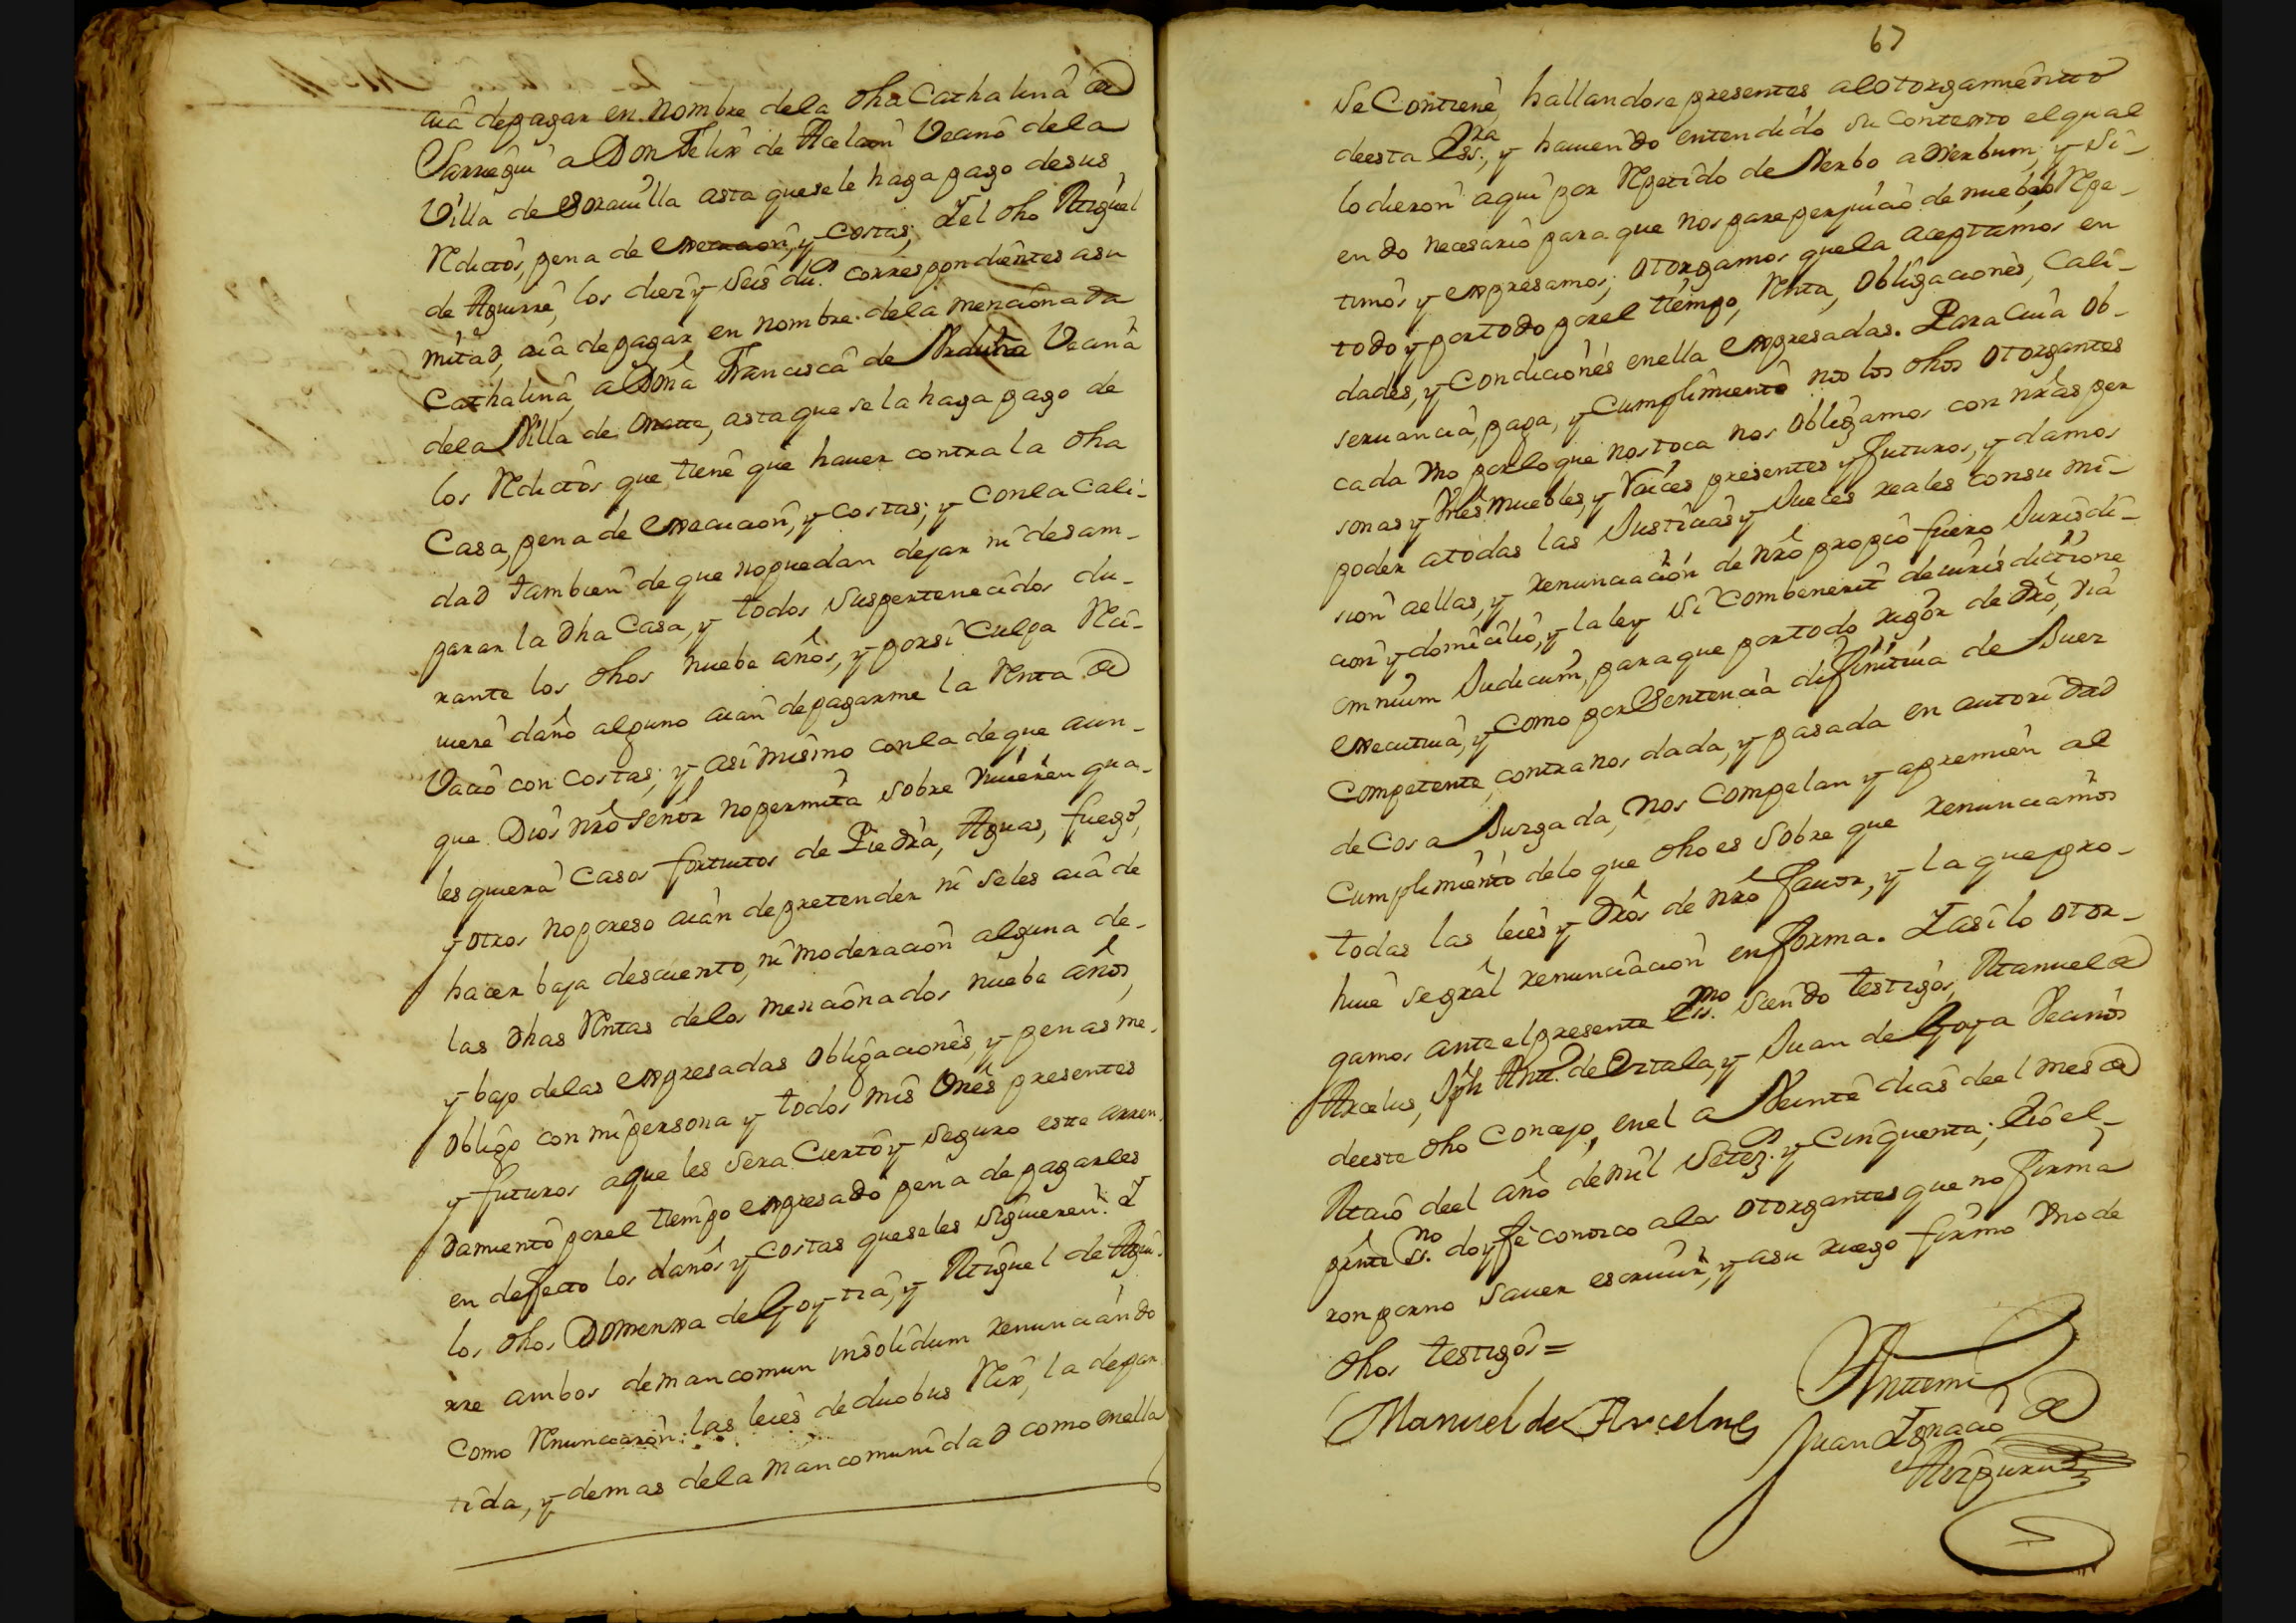 aiâ de pagar en nombre dela dha Cathalina de
Sarregui a Don Felix de Aelcon Vecino dela
Villa de Soravilla asta que se le haga pago de sus
Reditos, pena de execucion, y costas; Y el dho Miguel
de Aguirre, los diez y seis du.s correspondientes a su
mitad, aia de pagar en nombre dela mencionada
Cathalina, a Doña Francisca de Vecina
dela Villa de Oñatte, asta que se la haga pago de
los Reditos que tiene que hauer contra la dha
Casa, pena de execucion, y costas; y con la cali-
dad tambien de que no puedan dejar ni desam-
parar la dha Casa, y todos sus pertenecidos du-
rante los dhos nuebe años, y por si culpa Reci-
uiere daño alguno aian de pagarme la Renta de
Vacio con costas; y asi mismo con la de que aun-
que Dios nrô Señor no permita sobre vinieren qua-
lesquiera casos fortuitos de Piedra, Aguas, fuego,
y otros no por eso aian de pretender ni se les aia de
hacer baja descuento, ni moderacion alguna de-
las dhas Rentas delos mencionados nuebe años,
y bajo delas expresadas obligaciones, y penas me
obligo con mi persona y todos mis vnes presentes
y futuros a que les sera cierto y seguro este arren-
damiento por el tiempo expresado pena de pagarles
en defecto los daños y costas que se les siguieren. Y
los dhos Domenxa de Goytia, y Miguel de Agui-
rre ambos de mancomun insolidum renunciando
como Renunciaron las leies de duobus Rex, la depar
tida, y demas dela mancomunidad como en ella
67
se Contiene, hallandose presentes al otorgamiento
de esta Ess.ra, y hauiendo entendido su contexto el qual
lo dieron aqui por Repetido de Verbo adverbum, y si-
endo necesario para que nos pare perjuicio de nuebo Repe-
timos y expresamos; otorgamos que la aceptamos en
todo y por todo por el tiempo, Renta, Obligaciones, Cali-
dades, y Condiciones en ella expresadas. Para cuia ob-
seruancia, paga, y cumplimiento nos los dhos otorgantes
cada vno por lo que nos toca nos obligamos con nrâs per
sonas y vnes muebles, y raices presentes y futuros, y damos
poder a todas las Justicias y Jueces reales con su mi-
sion a ellas, y renunciacion de nrô propio fuero Jurisdi-
cion y domicilio, y la ley si combenerit de iurisdictione
omnium Judicum, para que por todo rigor de drô, via
executiua, y como por Sentencia difinitiua de Juez
Competente contra nos dada, y pasada en autoridad
de Cosa Juzgada, nos compelan y apremien al
Cumplimiento delo que dho es sobre que renunciamos
todas las leies y drôs de nrô fauor, y la que pro-
hiue segrâl renunciacion en forma. Y asi lo otor-
gamos ante el presente ess.no siendo testigos, Manuel de
Arcelus, Jph Antt.o de Ortala, y Juan de Goya Vecinos
de este dho Concejo, en el a Veinte dias de el mes de
Maio de el año de mil Setez.s y Cinquenta; Y io el
prnte ss.no doy fe conozco a los otorgantes que no firma
ron por no sauer escriuir, y a su ruego firmo vno de
dhos testigos =
Manuel de Arcelus
Anttemi
Juan Ygnacio de
Aizpuru